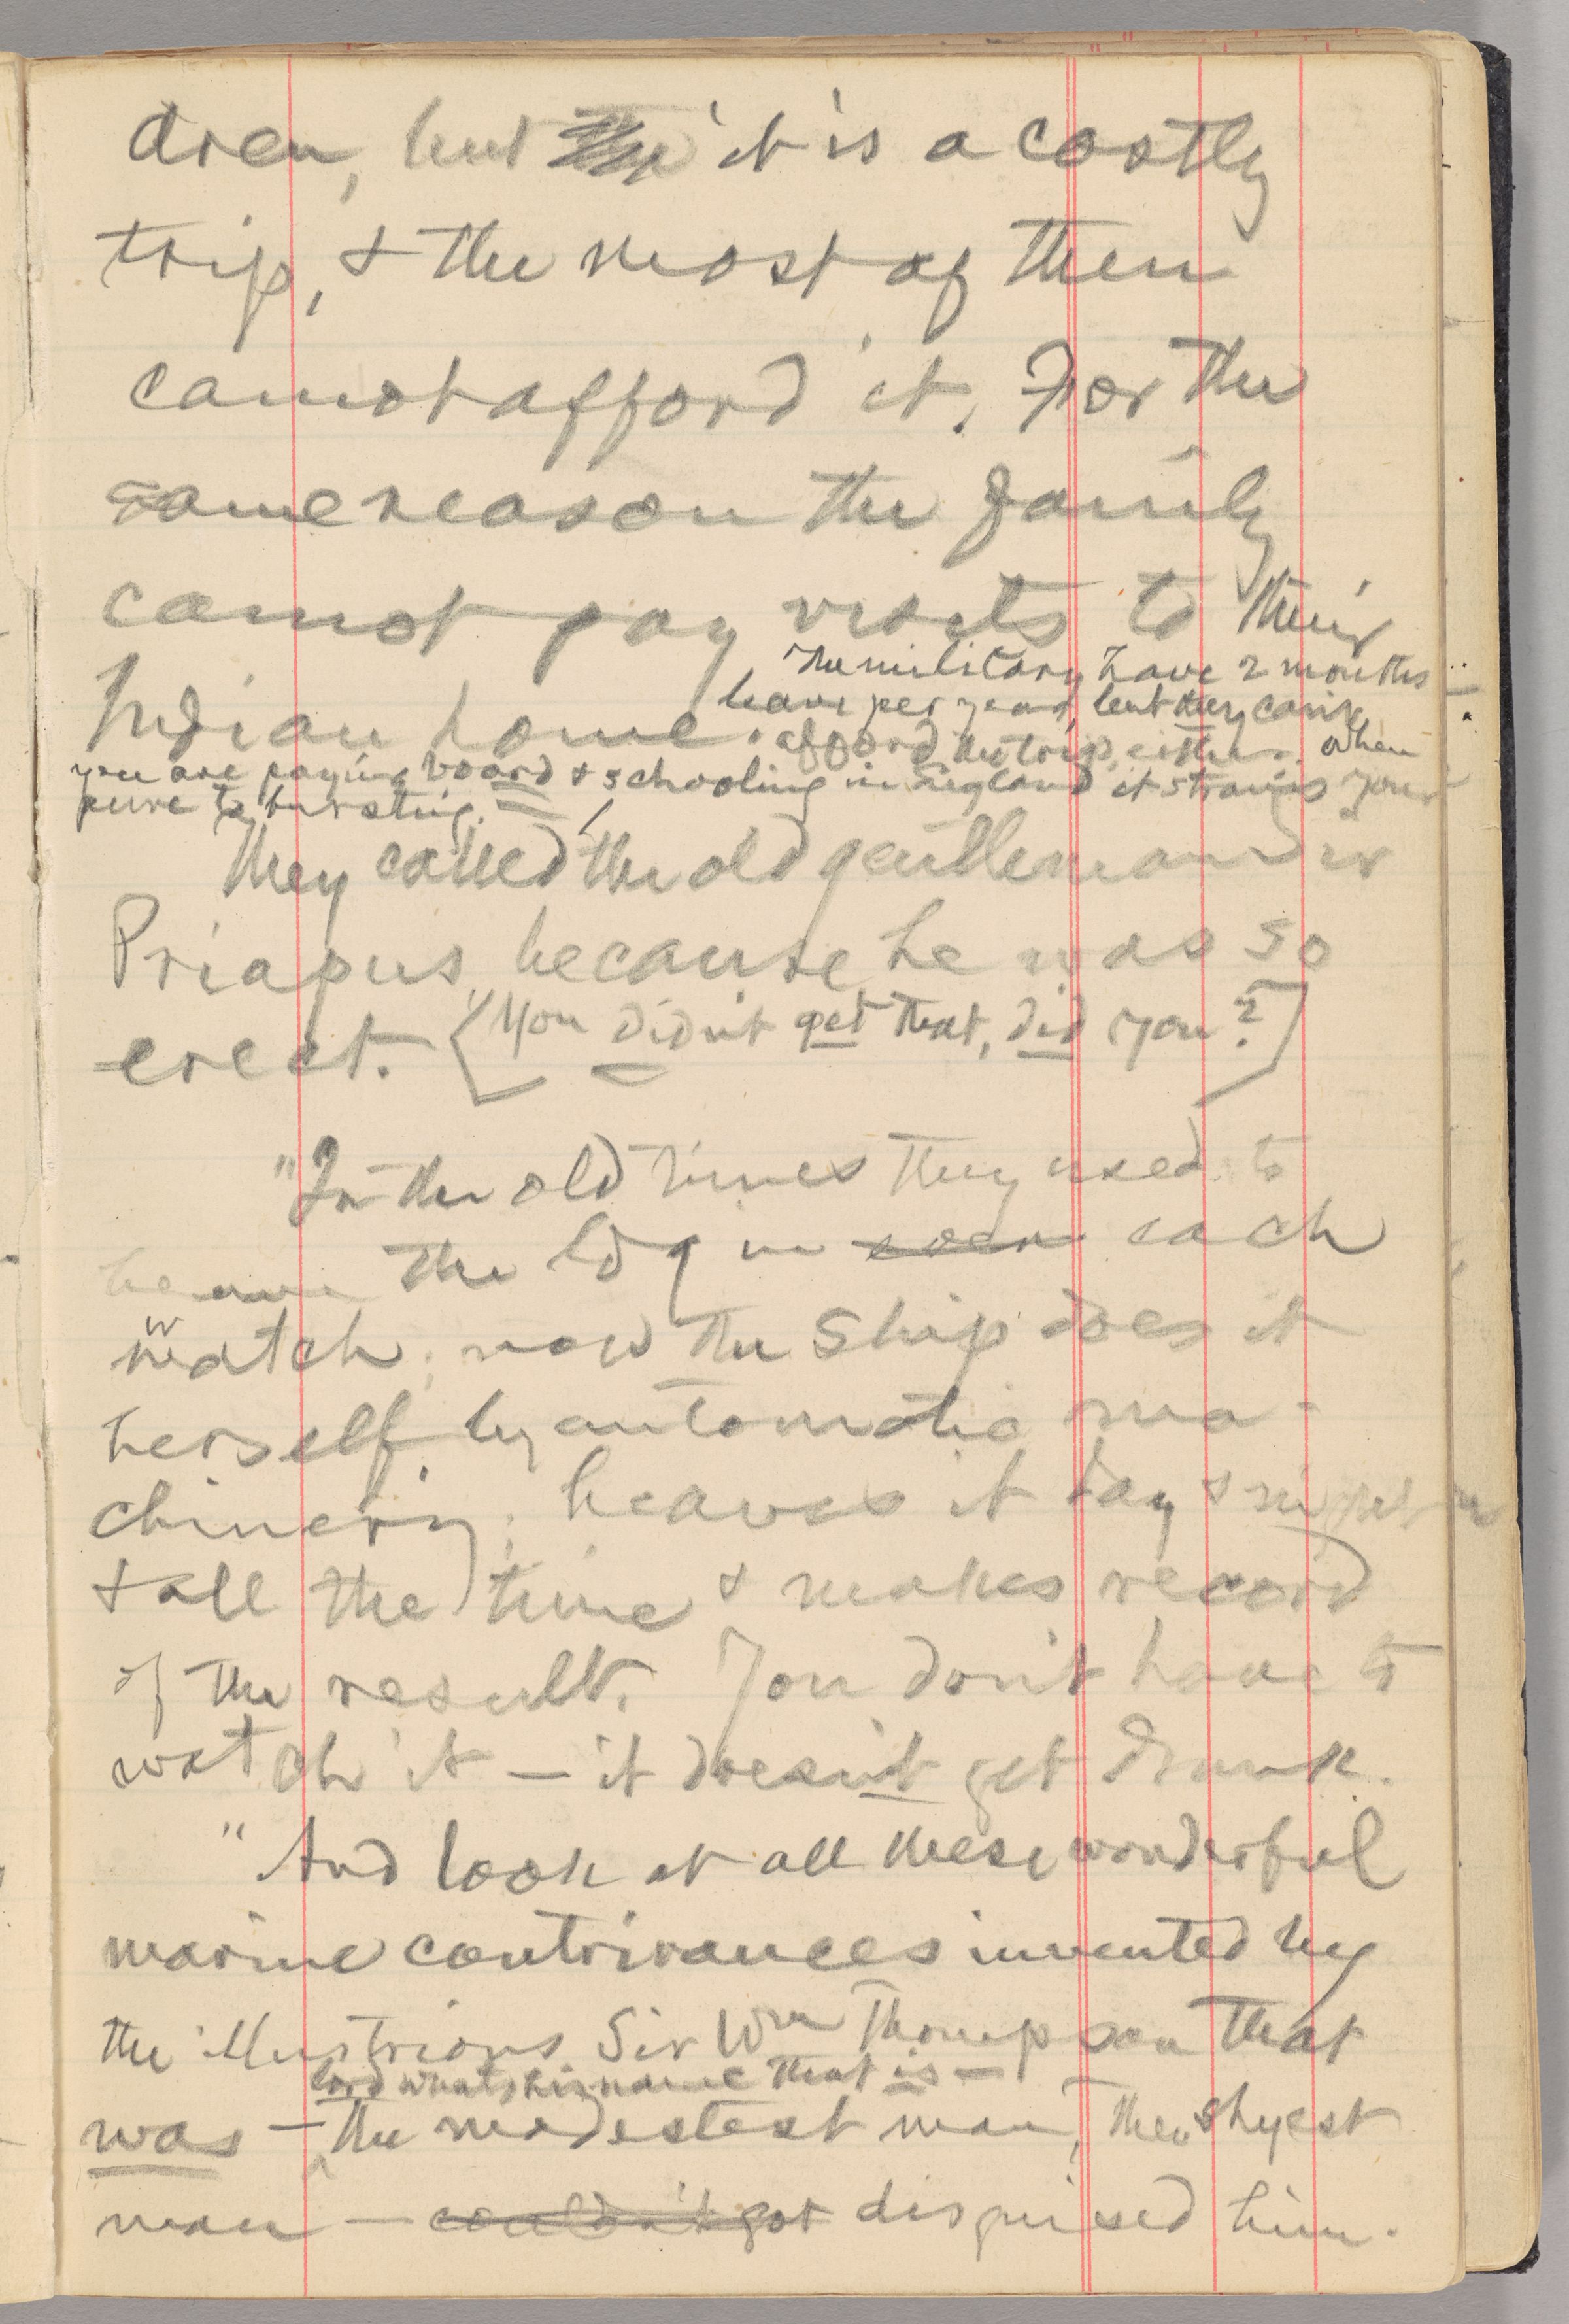 dren, but it is a costly
trip, & the most of them
cannot afford it. For the
same reason the family
cannot pay visits to their
Indian home. The military have 2 months
leave per year, but they can't
afford the trip, either. When
you are paying board & schooling in England it strains your
purse to bursting.
They called the old gentleman Sir
Priapus because he was so
erect. (You didn't get that, did you?)
"In the old times they used to
heave the ldg in each
watch; now the ship does it
herself by automatic ma-
chinery; heaves it day & night
& all the time & makes record
of the result. You don't have to
watch it — it doesn't get drunk.
"And look at all these wonderful
marine contrivances invented by
the illustrious Sir Wm Thompson that
was — Lord whatshisname that is —
the modestest man, the shyest
man — couldn't got disguised him.